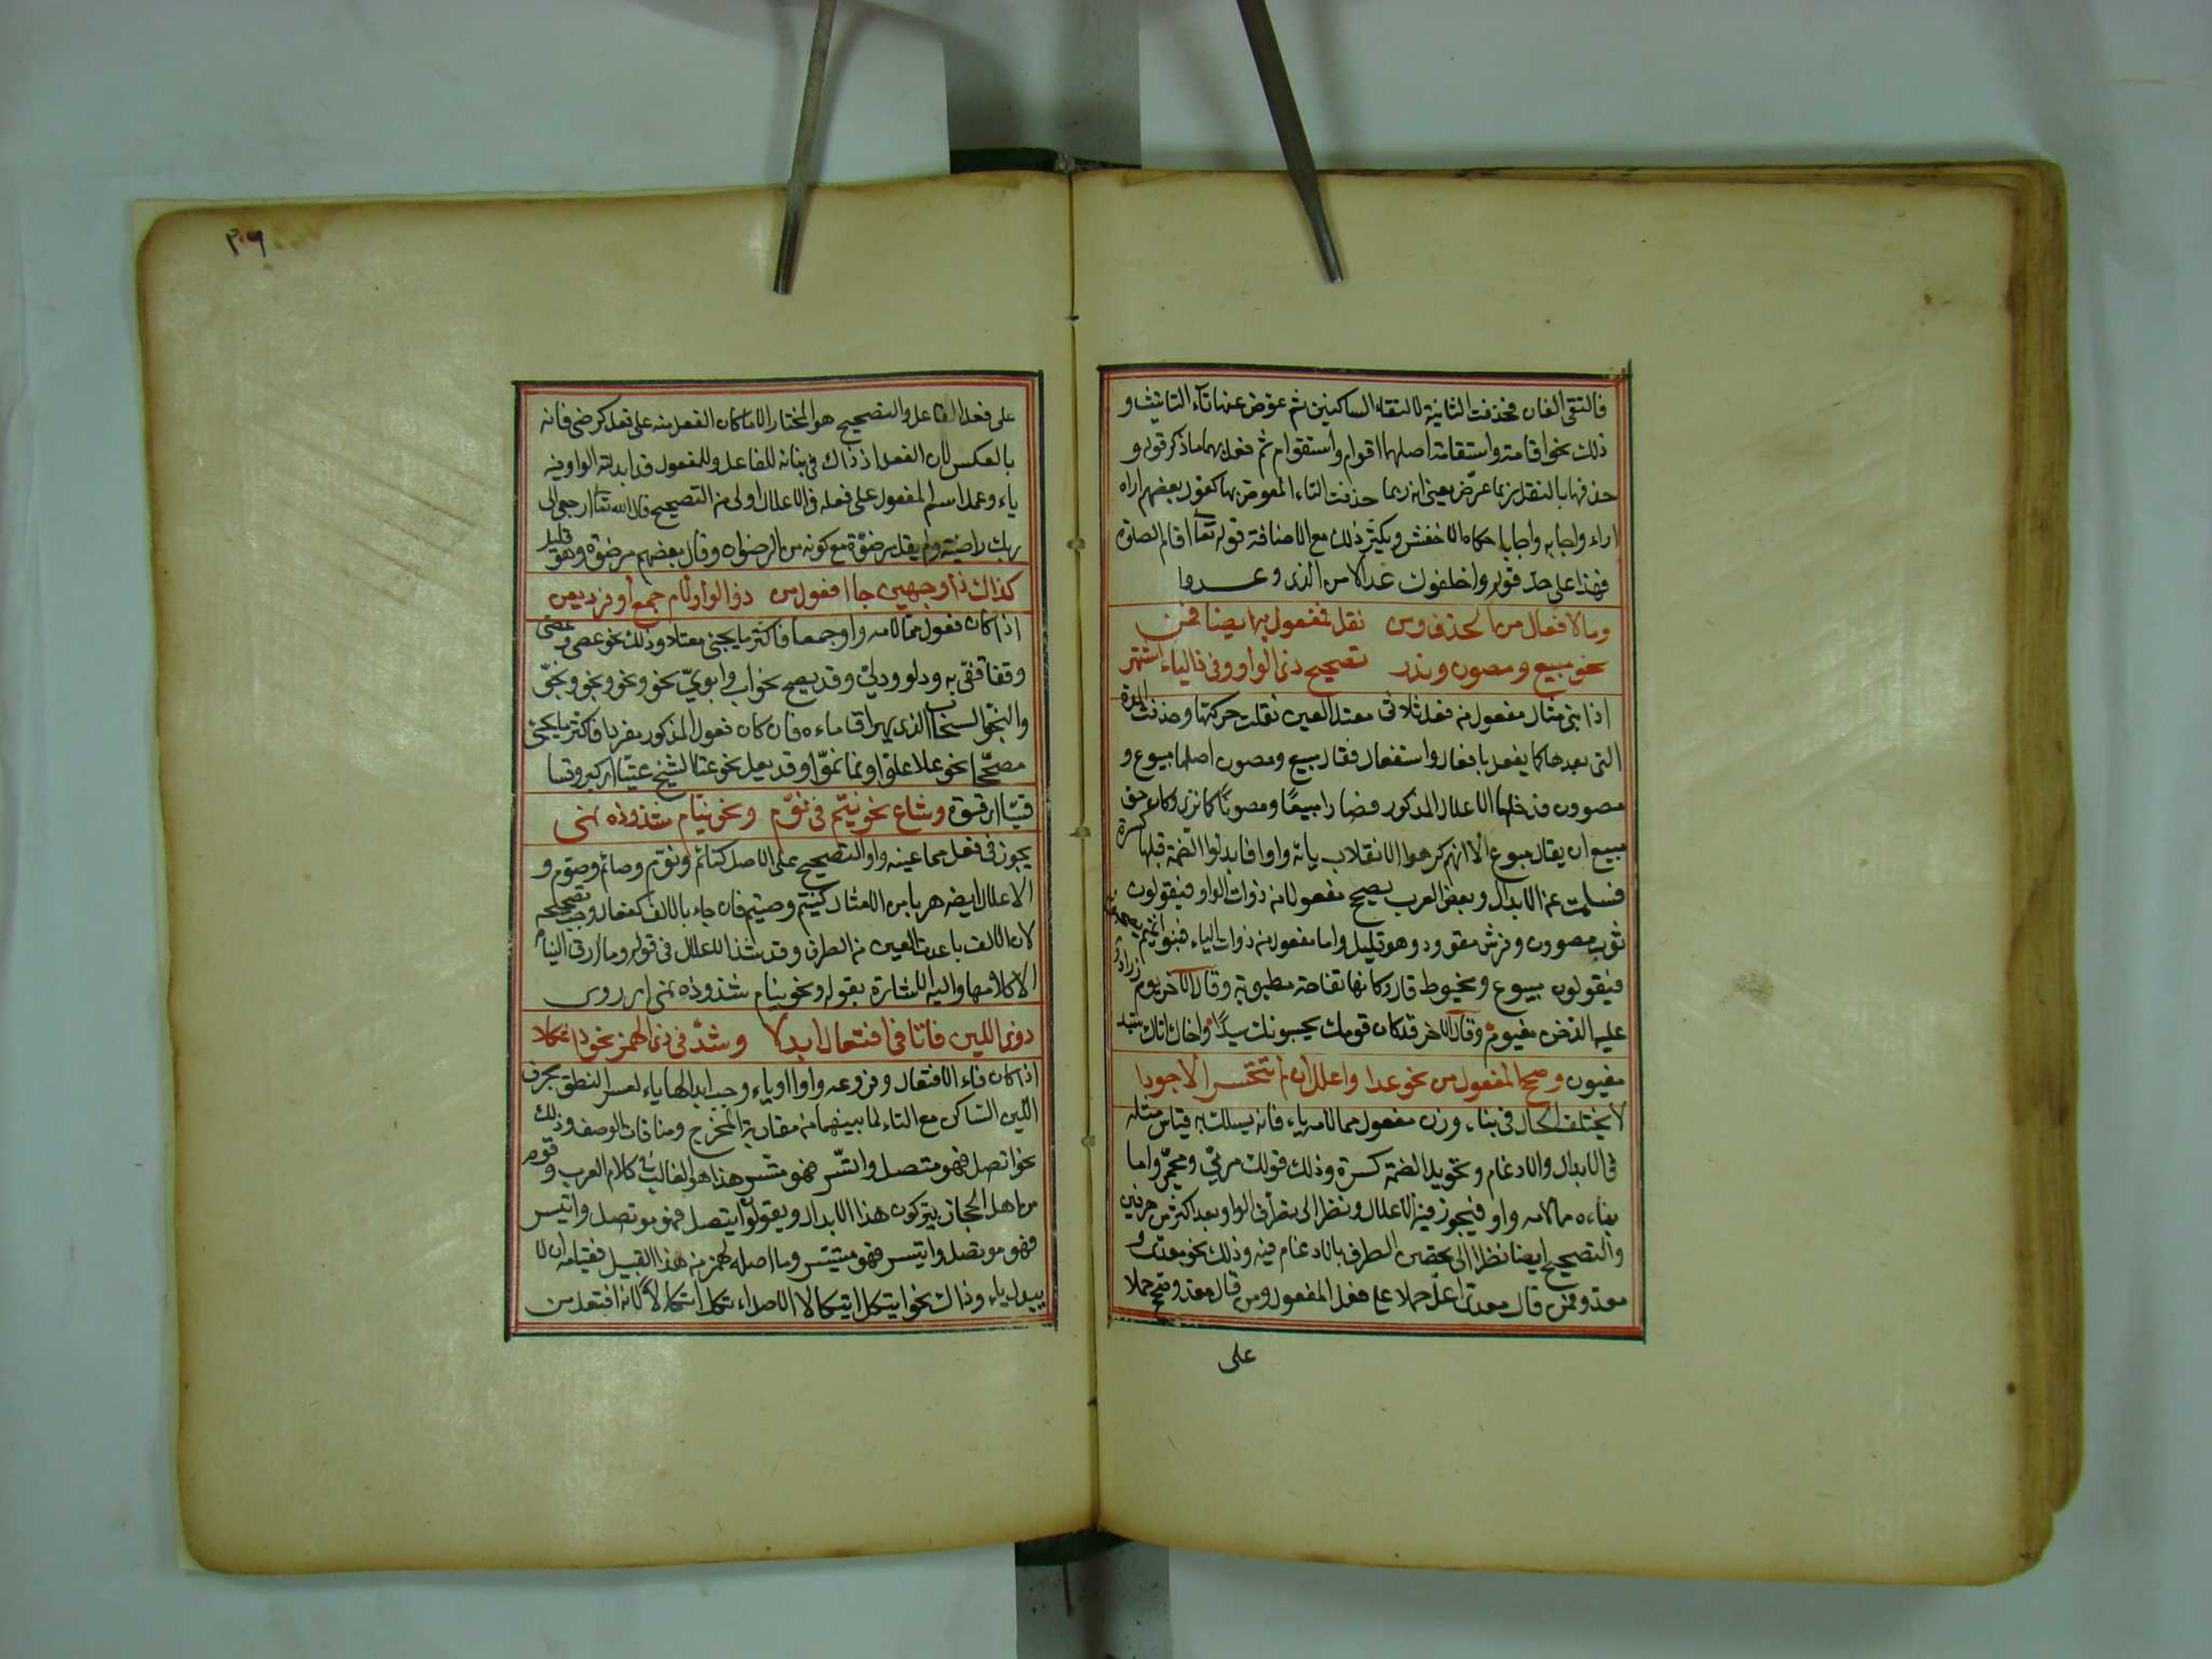 فالتقى الفان فحذفت الثانية لالتقاء الساكنين ثم عوض عنها تاء التانيث و
ذلك نحو اقامة واستقامة اصلهما اقوام واستقوام ثم فعل بهما ما ذكر قوله و
حذفها بالنقل ربما عرض يعنى انه ربما حذفت التاء المعوض بها كقول بعضهم اراه
اراء واجابه واجابا حكاه الاخفش ويكثر ذلك مع الاضافة قوله تعا اقام الصلوة
فهذا على حد قوله واخلفوك عد الامر الذى وعدوا
وما لافعال من الحذف ومن نقل فمفعول به ايضا قمن
نحو مبيع ومصون وندر تصحيح ذى الواو وفى ذى الياء اشتهر
اذا بنى مثال مفعول من فعل ثلاثى معتل العين نقلت حركتها وحذفت المدة
التى بعدها كما يفعل بافعال واستفعال فقال مبيع ومصون اصلهما مبيوع و
مصوون فدخلهما الاعلال المذكور فصارا مبيعا ومصونا كما ترى وكان حق
مبيع ان يقال مبوع الا انهم كرهوا انقلاب يائه واوا فابدلوا الضمة قبلها كسرة
فسلمت من الابدال وبعض العرب يصحح مفعولا من ذوات الواو فيقولون
ثوب مصوون وفرش مقوود وهو قليل واما مفعول من ذوات الياء فبنو تميم
فيقولون مبيوع ومخيوط قال وكانها تفاحة مطيوبة وقال الآخر يوم
عليه الدخن مغيوم وقال الآخر قد كان قومك يحسبونك سيدا واخال انك سيد
مغيون وصحح المفعول من نحو عدا واعلل ان لم تتحر الاجودا
لا يختلف الحال فى بناء وزن مفعول مما لامه ياء فانه يسلك به قياس مثله
فى الابدال والادغام وتحويل الضمة كسرة وذلك قولك مرمى ومحمى واما
بناءه مما لامه واو فيجوز فيه الاعلال ونظرا الى تطرف الواو بعد اكثر من حرفين
والتصحيح ايضا نظرا الى تحصين الطرف بالادغام فيه وذلك نحو معدى و
معدو فمن قال معدى اعل حملا على فعل المفعول ومن قال معدو صحح حملا
على
٣٠٦
على فعل الفاعل والتصحيح هو المختار الا ما كان الفعل منه على فعل كرضى فانه
بالعكس لان الفعل اذ ذاك فى بنائه للفاعل وللمفعول قد ابدلت الواو فيه
ياء وحمل اسم المفعول على فعله فى الاعلال اولى من التصحيح قال الله تعا ارجعى الى
ربك راضية ولم يقل مرضوة مع كونه من الرضوان وقال بعضهم مرضوة وهو قليل
كذاك ذا وجهين جا الفعول من ذى الواو لام جمع او فرد يعن
اذا كان فعول مما لامه واو جمعا فاكثر ما يجئ معتلا وذلك نحو عصى وعصى
وقفا وقفى به ودلو ودلى وقد يصح نحو اب وابو ونحو ونحو ونجو ونجو
والنجو السحاب الذى يهراق ماءه فان كان فعول المذكور مفردا فاكثر ما يجئ
مصححا نحو علا علوا ونما نموا وقد يعل نحو عتا الشيخ عتيا اى كبر وقسا
قسيا اى قسوة وشاع نحو نيم فى نوم ونحو نيام شذوذه نمى
يجوز فى فعل مما عينه واو التصحيح على الاصل كنائم ونوم وصائم وصوم و
الاعلال ايضا هربا من الامثال كنيم وصيم فان جاء بالالف كفعال وجب تصحيحه
لان الالف باعدت العين من الطرف وقد شذ الاعلال فى قوله وما ارق النيام
الا كلامها واليه الاشارة بقوله ونحو نيام شذوذه نمى اى روى
ذو اللين فا تا فى افتعال ابدلا وشذ فى ذى الهمز نحو ائتكلا
اذا كان فاء الافتعال وفروعه واوا او ياء وجب ابدالها ياء لعسر النطق بحرف
اللين الساكن مع التاء لما بينهما من مقاربة المخرج ومنافات الوصف وذلك
نحو اتصل فهو متصل واتسر فهو متسر هذا هو الغالب فى كلام العرب وقوم
من اهل الحجاز يتركون هذا الابدال ويقولون ايتصل فهو موتصل وايتسر
فهو موتصل وايتسر فهو ميتسر وما اصله الهمز من هذا القبيل فقياسه ان لا
يبدل ياء وذاك نحو ايتكل ايتكالا الاصل ائتكل ائتكالا لانه افتعل من